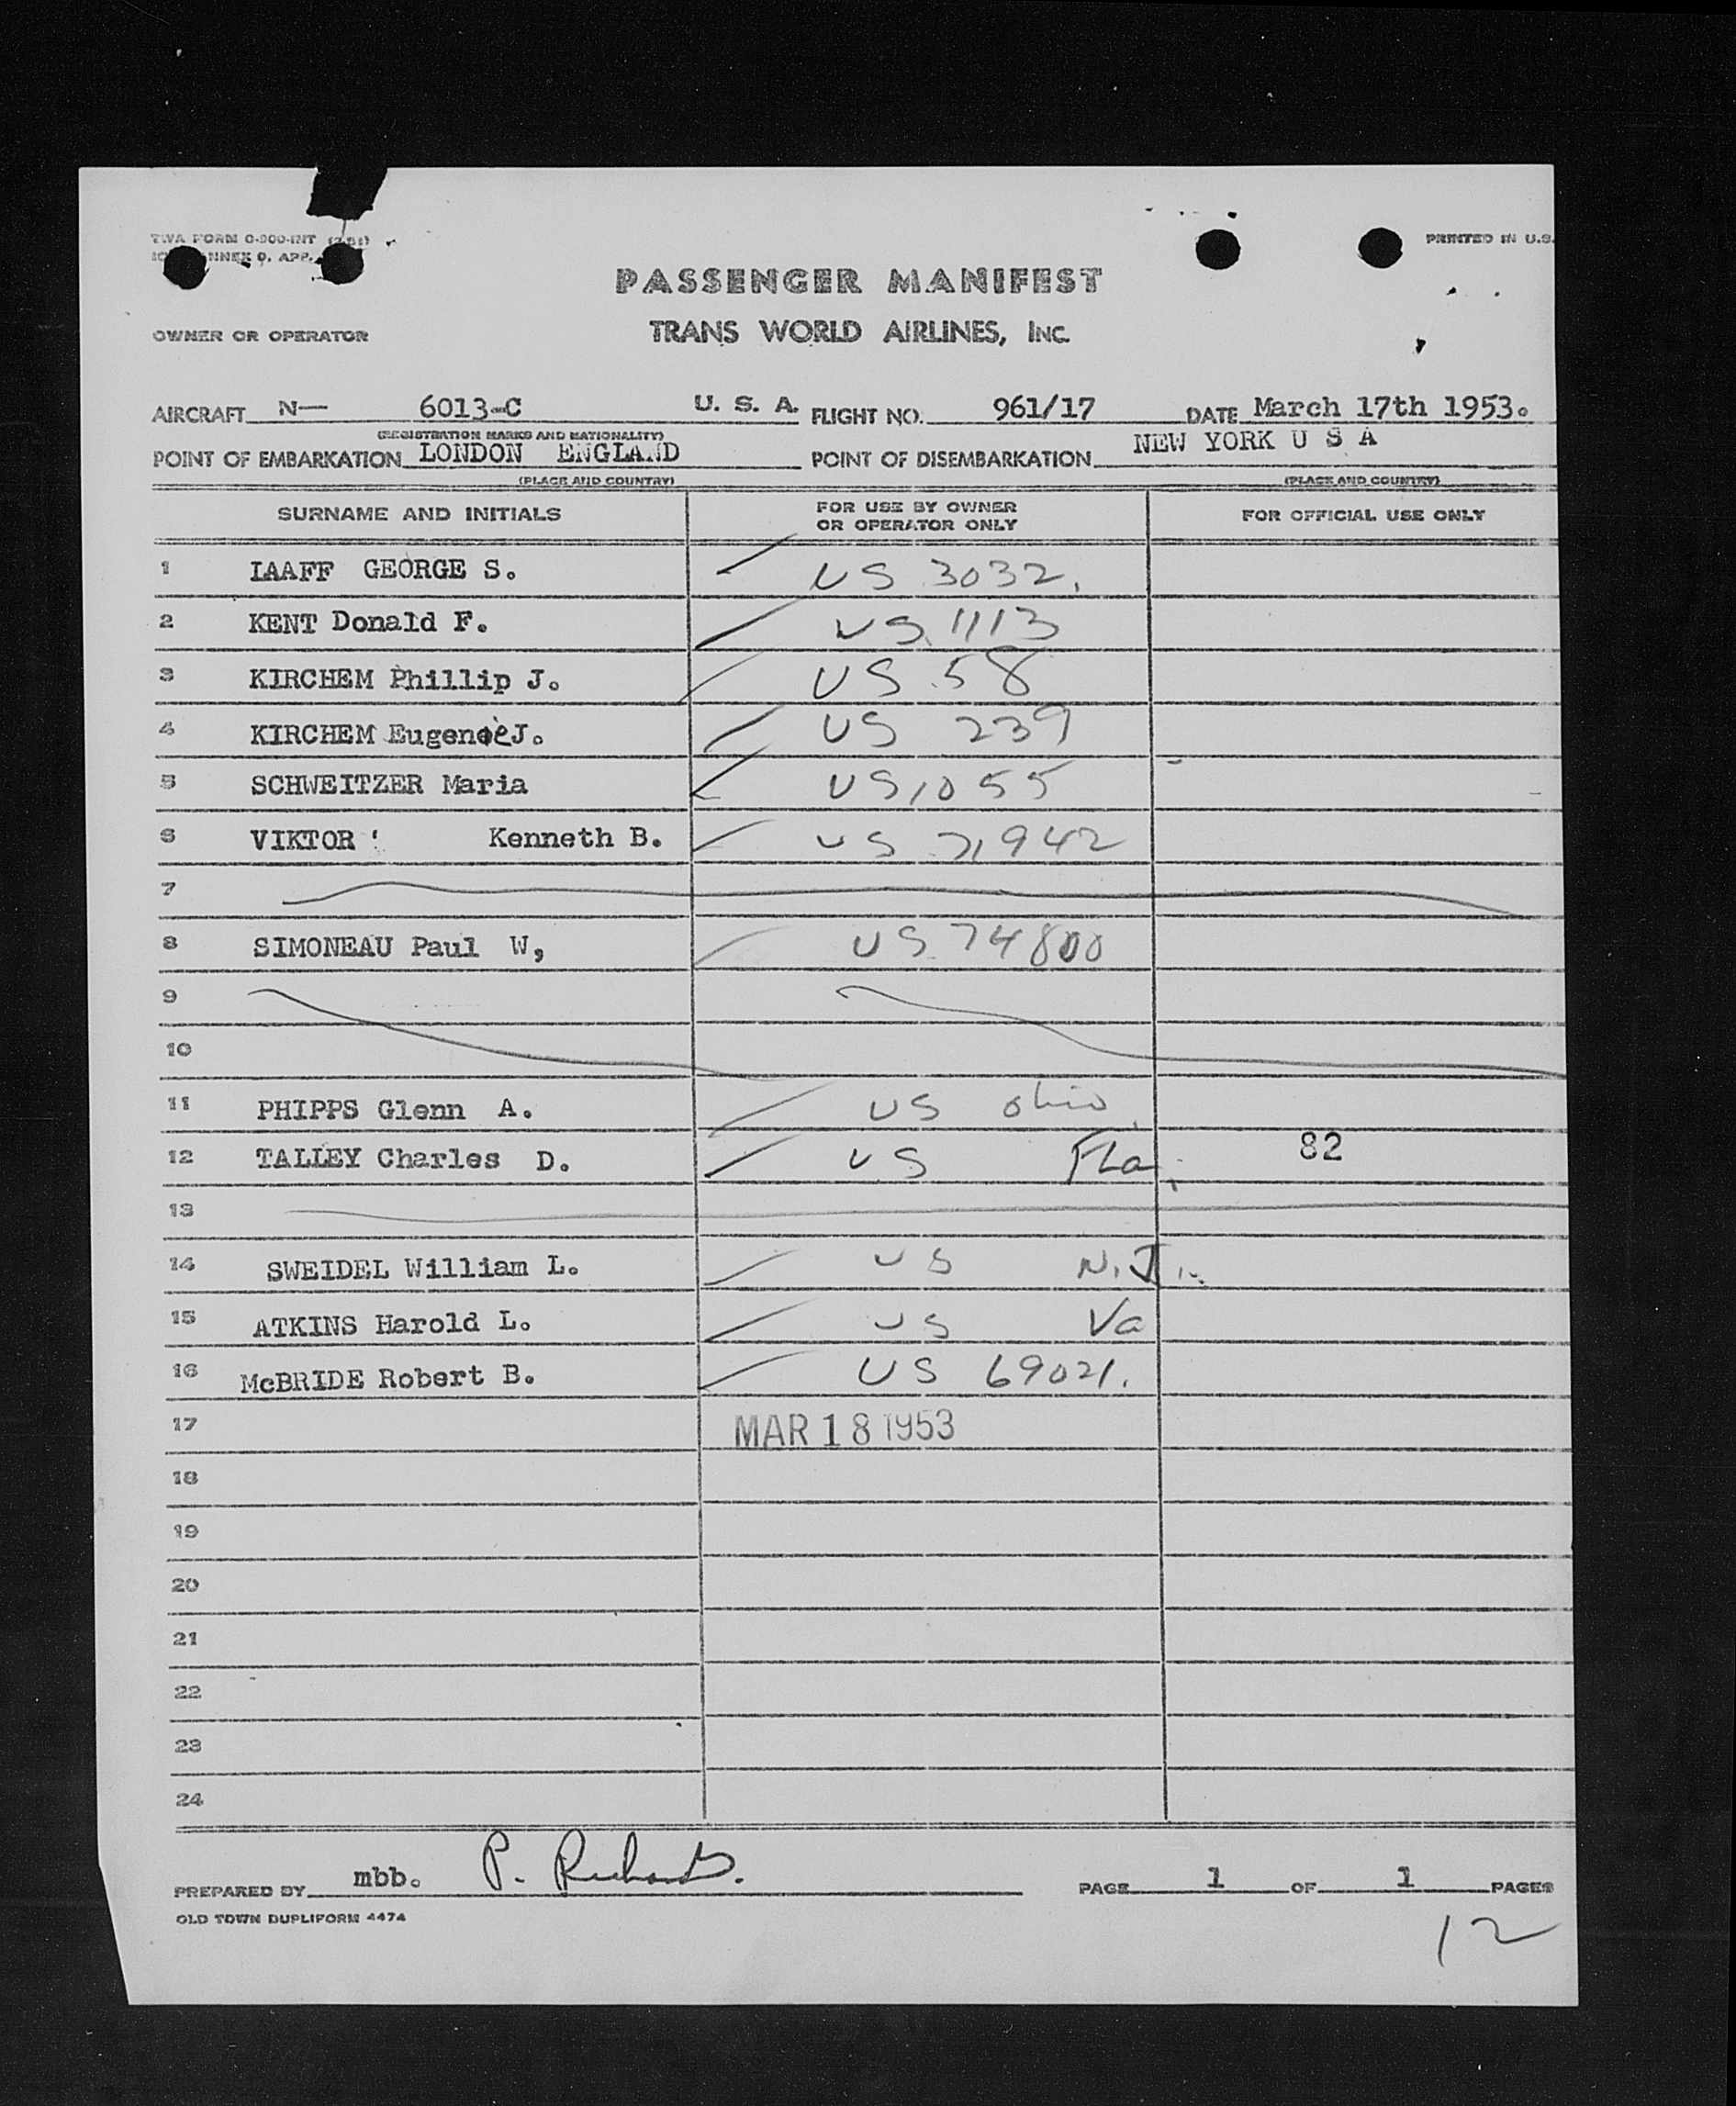 TWA FORM O-900-INT (7-51)
ANNEX 9, APP.
PRINTED IN U.S.
PASSENGER MANIFEST
OWNER OR OPERATOR TRANS WORLD AIRLINES, INC.
AIRCRAFT N— 6013-C U. S. A. FLIGHT NO. 961/17 DATE March 17th 1953.
(REGISTRATION MARKS AND NATIONALITY)
POINT OF EMBARKATION LONDON ENGLAND POINT OF DISEMBARKATION NEW YORK U S A
(PLACE AND COUNTRY) (PLACE AND COUNTRY)
SURNAME AND INITIALS FOR USE BY OWNER OR OPERATOR ONLY FOR OFFICIAL USE ONLY
1 LAAFF GEORGE S. US 3032.
2 KENT Donald F. US 1113
3 KIRCHEM Phillip J. US 58
4 KIRCHEM Eugene J. US 239
5 SCHWEITZER Maria US 1055
6 VIKTOR Kenneth B. US 7,942
7
8 SIMONEAU Paul W, US 74800
9
10
11 PHIPPS Glenn A. US Ohio
12 TALLEY Charles D. US Fla. 82
13
14 SWEIDEL William L. US N.J.
15 ATKINS Harold L. US Va
16 McBRIDE Robert B. US 69021.
17 MAR 18 1953
18
19
20
21
22
23
24
PREPARED BY mbb. P. Richards. PAGE 1 OF 1 PAGES
OLD TOWN DUPLIFORM 4474
12